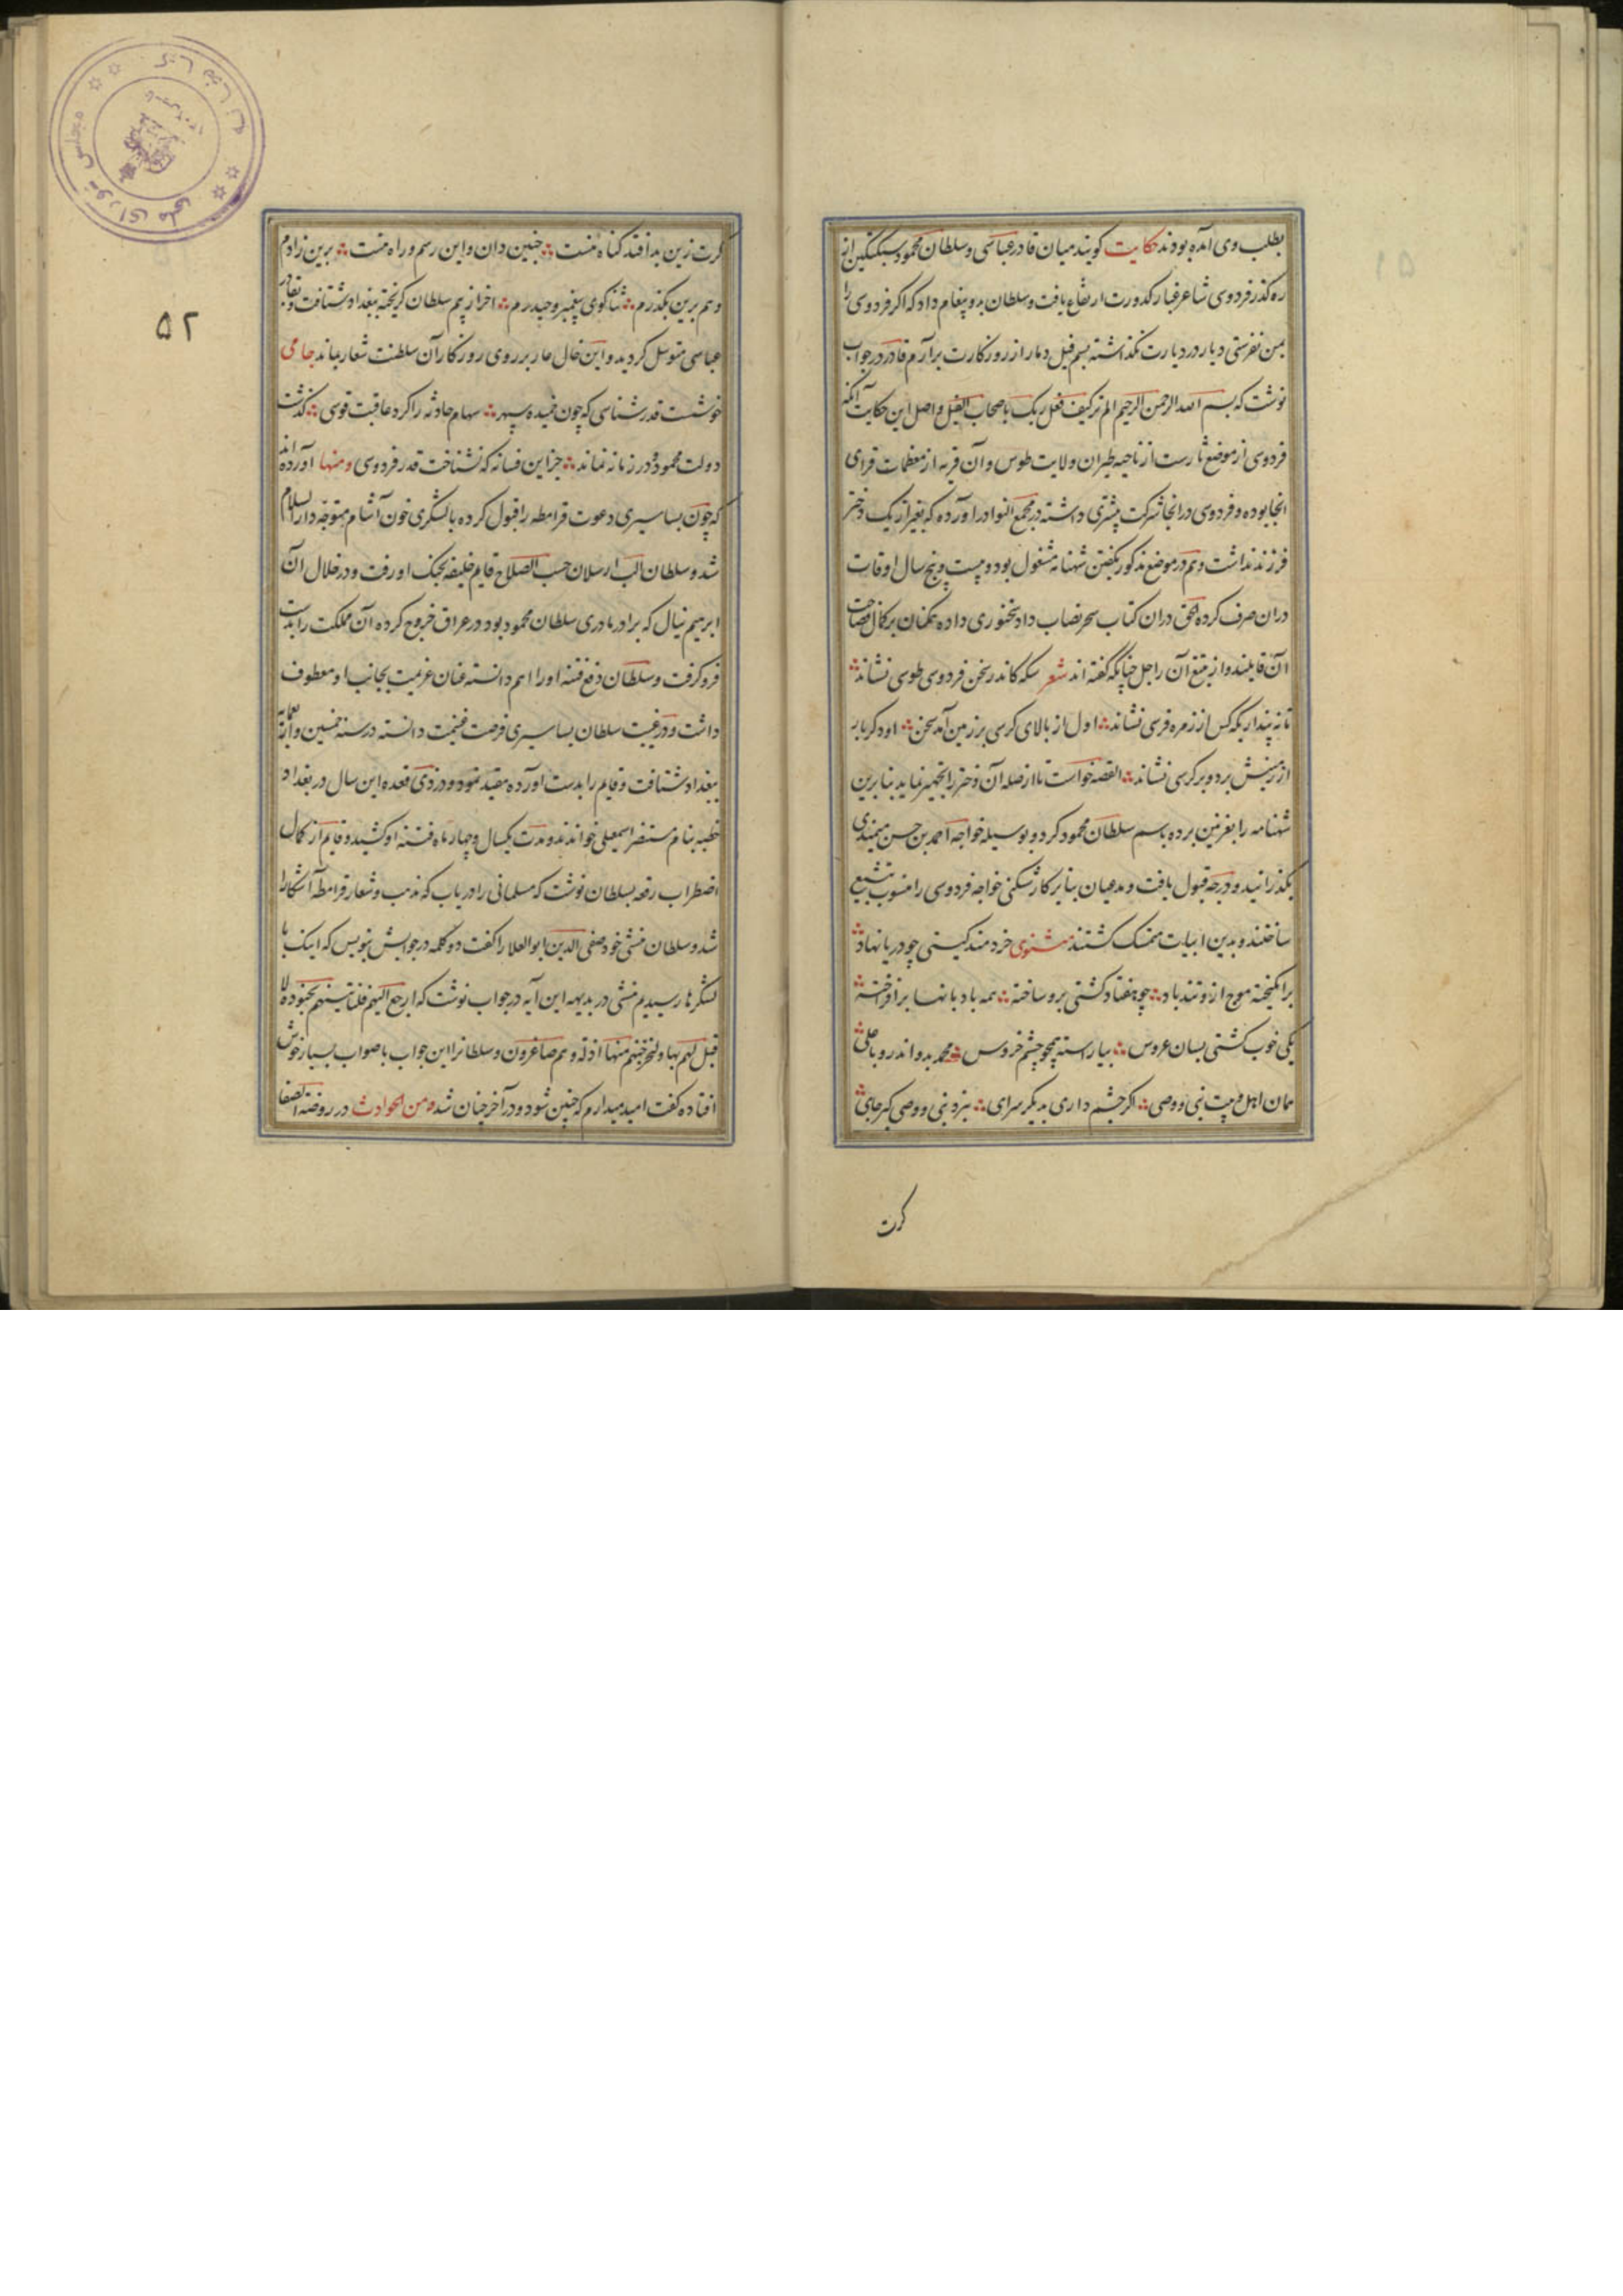 بطلب وی آمده بودند حکایت کویند میان قادر عباسی و سلطان محمود سبکتکین از
ره کذر فردوسی شاعر غبار کدورت ارتفاع یافت و سلطان بدو پیغام داد که اکر فردوسی را
بمن نفرستی دیار در دیارت نکذاشته بسم فیل دمار از روزکارت برآرم قادر در جواب
نوشت که بسم الله الرحمن الرحیم الم ترکیف فعل ربک باصحاب الفیل و اصل این حکایت آنکه
فردوسی از موضع شارست از ناحیه طبران ولایت طوس و آن قریه از معظمات قرای
انجا بوده و فردوسی در انجا شرکت پیشتری داشته در مجمع النوادر آورده که بغیر از یک دختر
فرزند نداشت و هم در موضع مذکور بکفتن شهنامه مشغول بود و بیست و پنج سال اوقات
دران صرف کرده الحق دران کتاب سحر نصاب داد سخنوری داده همکنان بر کمال فصاحت
آن قایلند و از متبع آن راجل چنانکه کفته اند شعر سکه کاندر سخن فردوسی طوسی نشاند
تا نه پنداریکه کس از زمره فرسی نشاند اول از بالای کرسی بر زمین آمد سخن او دکر بار
از زمینش برد و بر کرسی نشاند القصه خواست تا از صله آن دختر را تجهیز نماید بنابرین
شهنامه را بغزنین برده باسم سلطان محمود کرد و بوسیله خواجه احمد بن حسن میمندی
بکذرانید و درجه قبول یافت و مدعیان بنابر کارشکنی خواجه فردوسی را منسوب بتشیع
ساختند و بدین ابیات متمسک کشتند مثنوی خردمند کیتی چو دریا نهاد
برانکیخته موج ازو تند باد چو هفتاد کشتی برو ساخته همه بادبانها برافراخته
یکی خوب کشتی بسان عروس بیاراسته همچو چشم خروس محمد بدو اندر و با علی
همان اهل بیت نبی و وصی اکر چشم داری بدیکر سرای بنزد نبی و وصی کیر جای
کرت
کرت زین بد افتد کناه منست چنین دان و این رسم و راه منست برین زادم
و هم برین بکذرم ثناکوی پیغمبر و حیدرم اخر از بیم سلطان کریخته ببغداد شتافت و بقادر
عباسی متوسل کردید و این خال عار بر روی روزکار آن سلطنت شعار بماند جامی
خوشست قدرشناسی که چون خمیده سپهر سهام حادثه را کرد عاقبت قوسی کذشت
دولت محمود و در زمانه نماند جز این فسانه که نشناخت قدر فردوسی و منها آورده اند
که چون بساسیری دعوت قرامطه را قبول کرده بالشکری خون آشام متوجه دارالسلام
شد و سلطان الب ارسلان حسب الصلاح قایم خلیفه بجنک او رفت و در خلال آن
ابرهیم نیال که برادر مادری سلطان محمود بود در عراق خروج کرده آن مملکت را بدست
فرو کرفت و سلطان دفع فتنه او را اهم دانسته عنان عزیمت بجانب او معطوف
داشت و در غیبت سلطان بساسیری فرصت غنیمت دانسته در سنه خمسین و اربعمایة
ببغداد شتافت و قایم را بدست آورده مقید نمود و در ذی قعده این سال در بغداد
خطبه بنام مستنصر اسمعیلی خواندند و مدت یکسال و چهار ماه فتنه او کشید و قایم از کمال
اضطراب رقعه بسلطان نوشت که مسلمانی را دریاب که مذهب و شعار قرامطه آشکارا
شد و سلطان منشی خود صفی الدین ابوالعلا را کفت دو کلمه در جوابش بنویس که اینک با
لشکرها رسیدیم منشی در بدیهه این آیه در جواب نوشت که ارجع الیهم فلناتینهم بجنود لا
قبل لهم بها و لنخرجنهم منها اذلة و هم صاغرون و سلطانرا این جواب باصواب بسیار خوش
افتاده کفت امید میدارم که چنین شود و در آخر چنان شد و من الحوادث در روضة الصفا
۵۲